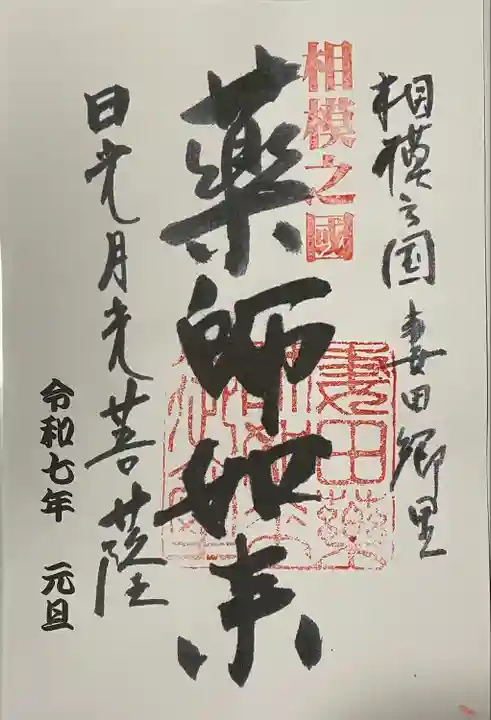 相模之国 妻田郷里
相模之國
薬師如来
妻田薬
日光月光菩薩
令和七年 元旦